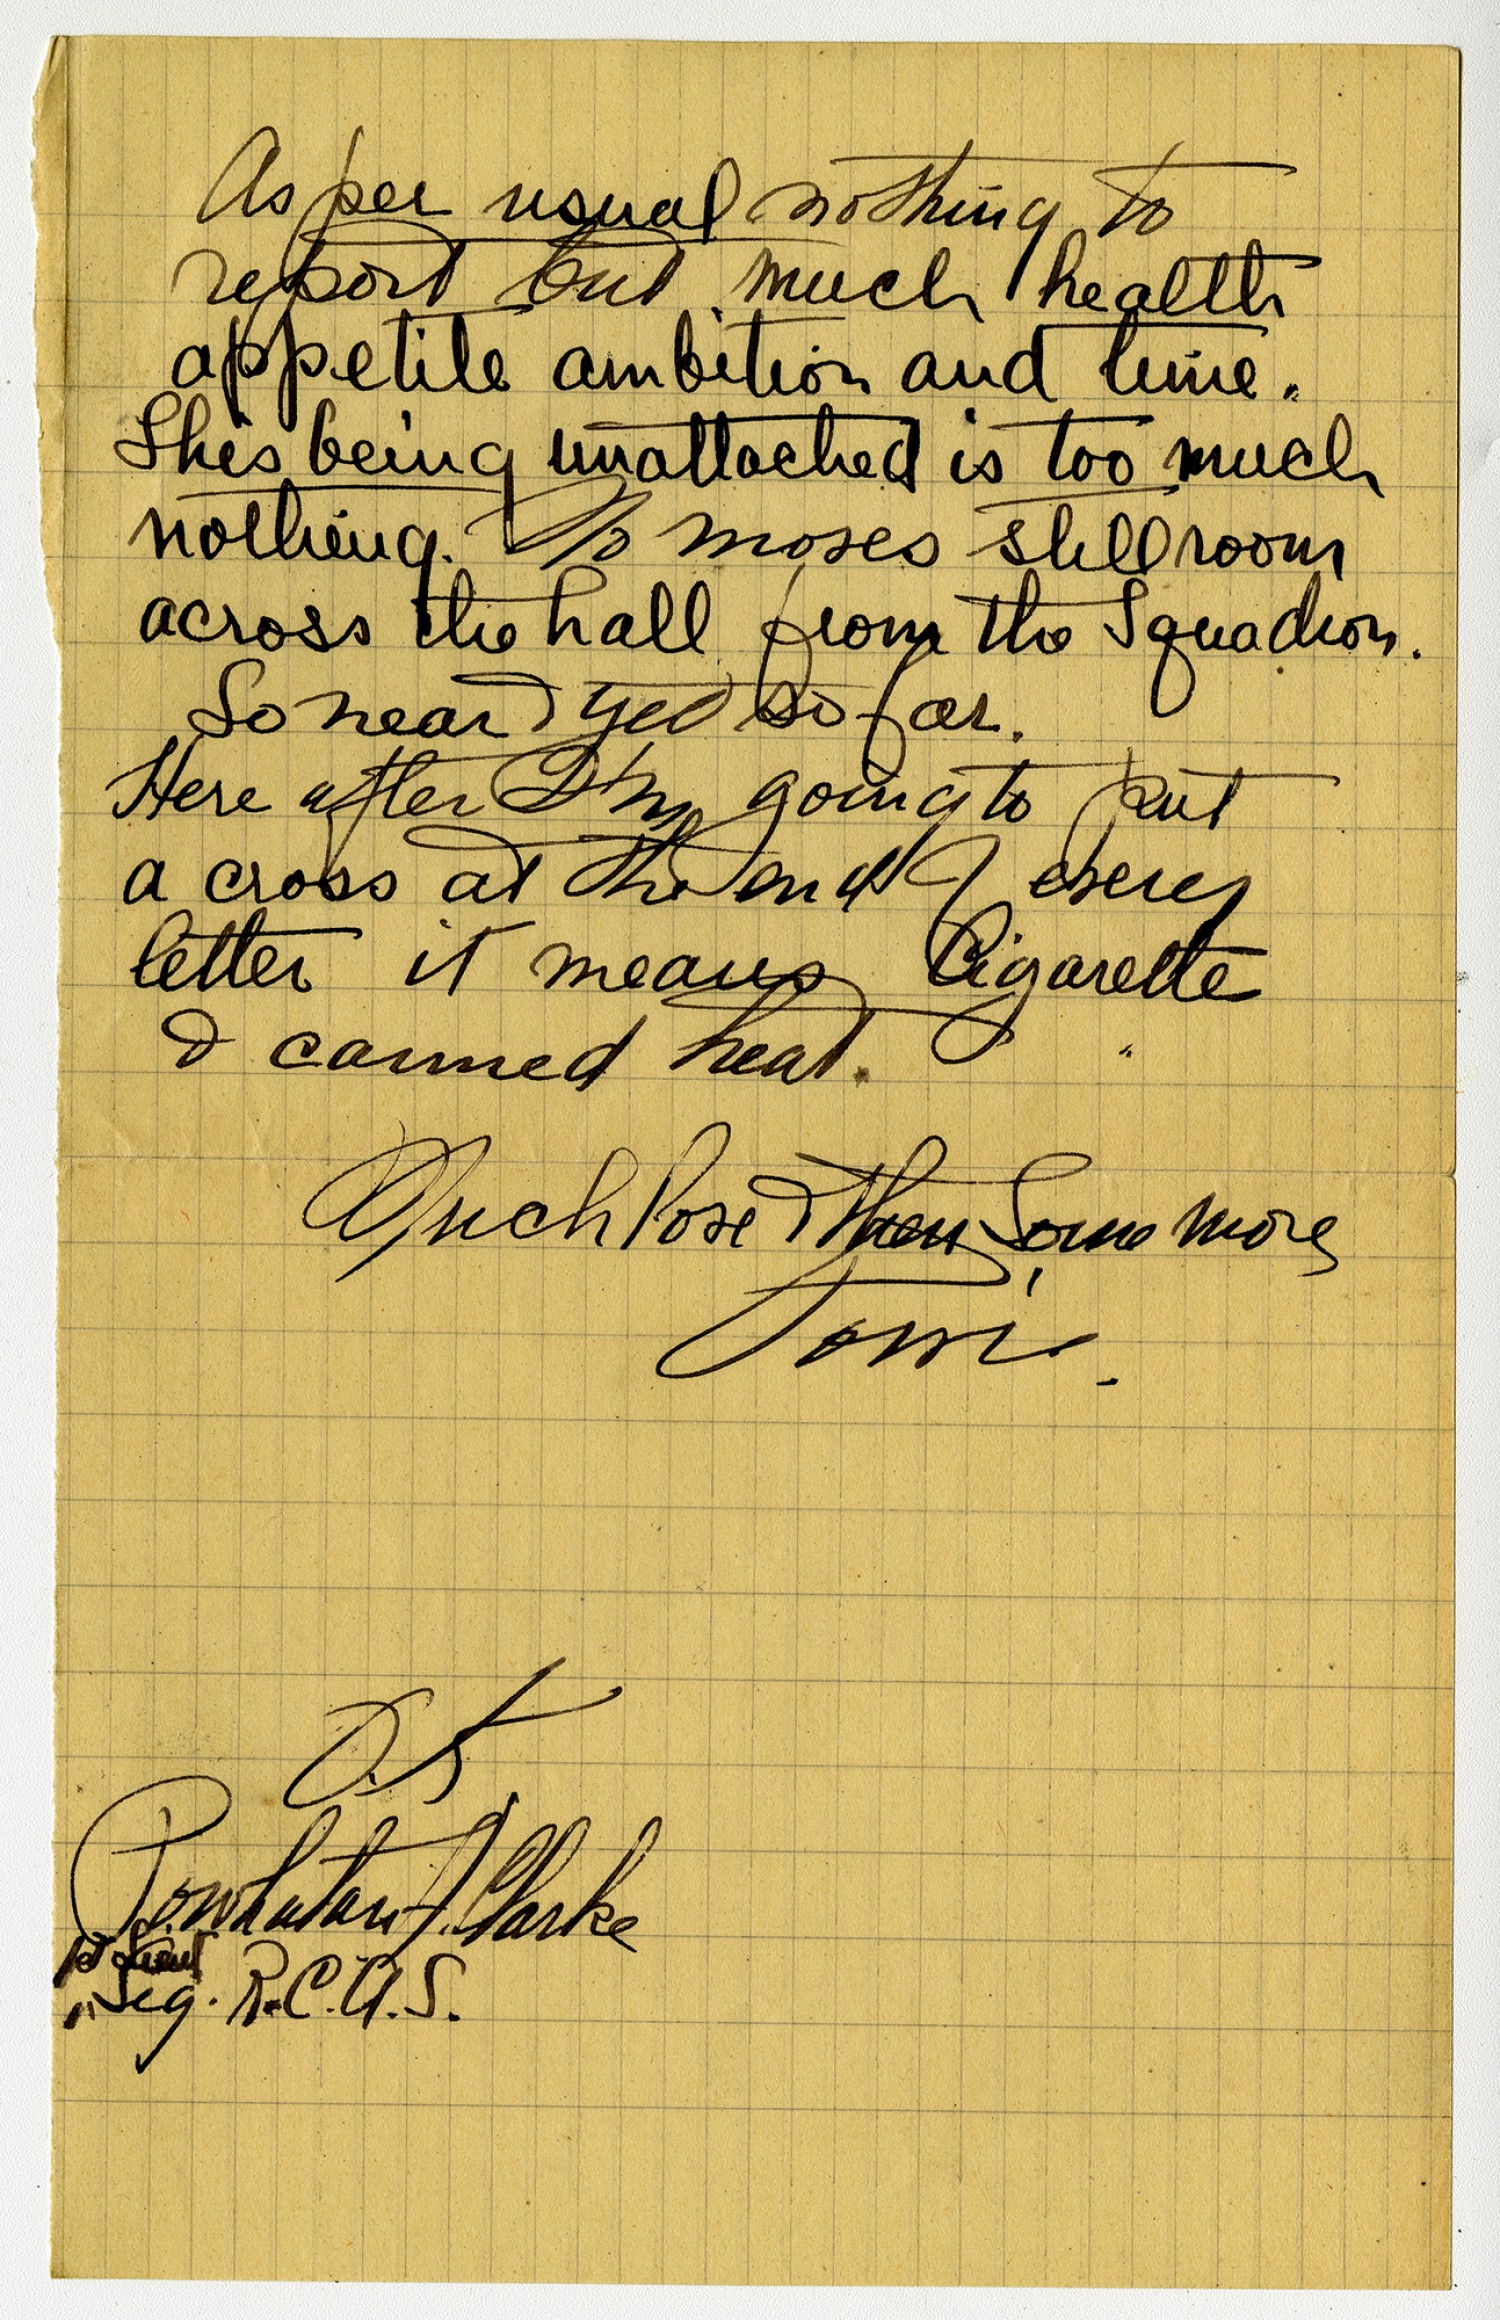 As per usual nothing to
report but much health
appetite ambition and time.
This being unattached is too much
nothing. Mo moses still room
across the hall from the Squadron.
So near & yet so far.
Here after I'm going to put
a cross at the end of every
letter it means Cigarette
& canned heat.
Much love & then some more
Tom.
O.K
Powhatan J. Clarke
1st Lieut
Sig. R.C. A.S.